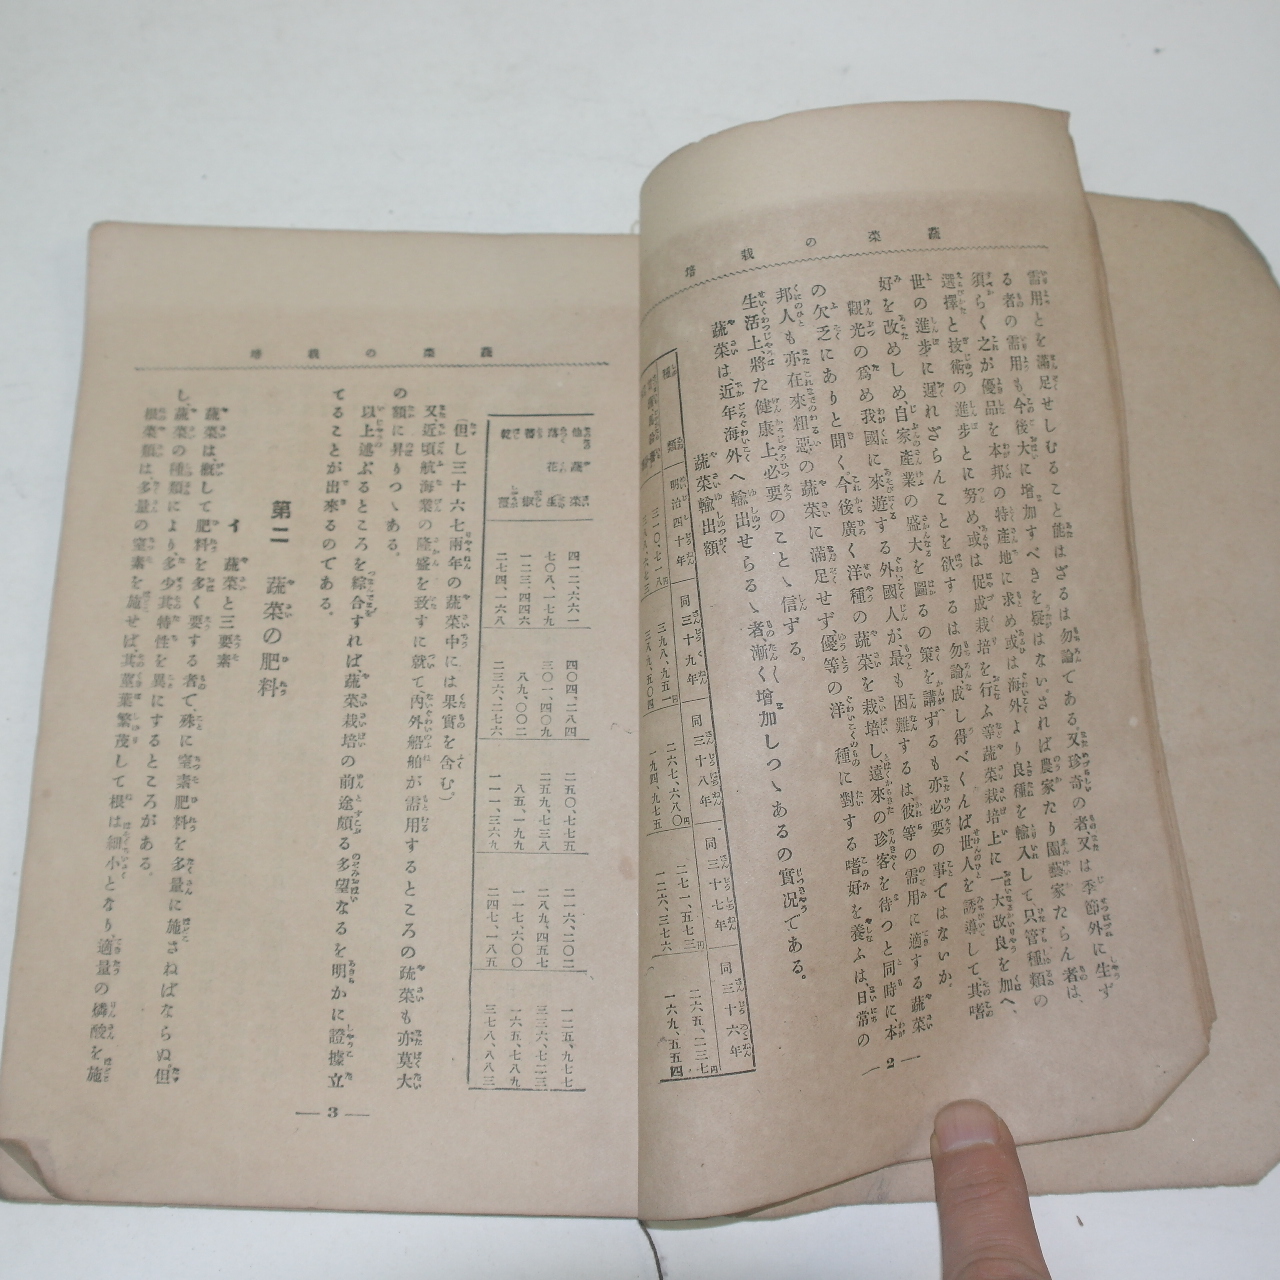 蔬菜の栽培
需用とを滿足せしむること能はざるは勿論である、又珍奇の者、又は季節外に生ず
る者の需用も、今後大に增加すべきを疑はない。されば農家たり園藝家たらん者は、
須らく之が優品を本邦の特產地に求め或は海外より良種を輸入して、只管種類の
選擇と技術の進步とに努め、或は促成栽培を行ふ等蔬菜栽培上に一大改良を加へ、
世の進步に遲れざらんことを欲するは勿論、成し得べくんば世人を誘導して、其嗜
好を改めしめ、自家產業の盛大を圖るの策を講ずるも亦必要の事ではないか。
觀光の爲め我國に來遊する外國人が、最も困難するは、彼等の需用に適する蔬菜
の欠乏にありと聞く、今後廣く洋種の蔬菜を栽培し、遠來の珍客を待つと同時に、本
邦人も亦在來粗惡の蔬菜に滿足せず、優等の洋種に對する嗜好を養ふは、日常の
生活上、將た健康上、必要のことゝ信ずる。
蔬菜は、近年海外へ輸出せらるゝ者、漸く增加しつゝあるの實況である。
蔬菜輸出額
種類 明治四十年 同三十九年 同三十八年 同三十七年 同三十六年
三一〇、七一八円 三九八、九五一円 二六七、六八〇円 二七一、五七三円 二六五、二三七円
三八九、五〇四 一九四、九七五 一二六、三七六 一六九、五五四
— 2 —
蔬菜の栽培
蔬菜 四一二、六六一 四〇四、二八四 二五〇、七七五 二一六、二〇二 一二五、九七七
落花生 七〇八、一七九 三〇一、四〇九 二五九、七三八 二八九、四五七 三三六、七二三
蕃椒 一二三、四四六 八九、〇〇二 八五、一九九 一一七、六〇〇 一六五、七八九
乾薑 二七四、一六八 二三六、二七六 一一一、三六九 二四七、一八五 三七八、八八三
(但し三十六七兩年の蔬菜中には果實を含む。)
又、近頃航海業の隆盛を致すに就て、內外船舶が需用するところの疏菜も亦莫大
の額に昇りつゝある。
以上述ぶるところを綜合すれば、蔬菜栽培の前途頗る多望なるを明かに證據立
てることが出來るのである。
第二 蔬菜の肥料
イ 蔬菜と三要素
蔬菜は、概して肥料を多く要する者で、殊に窒素肥料を多量に施さねばならぬ、但
し、蔬菜の種類により、多少其特性を異にするところがある。
根菜類は、多量の窒素を施せば、其莖葉繁茂して根は細小となり、適量の燐酸を施
— 3 —